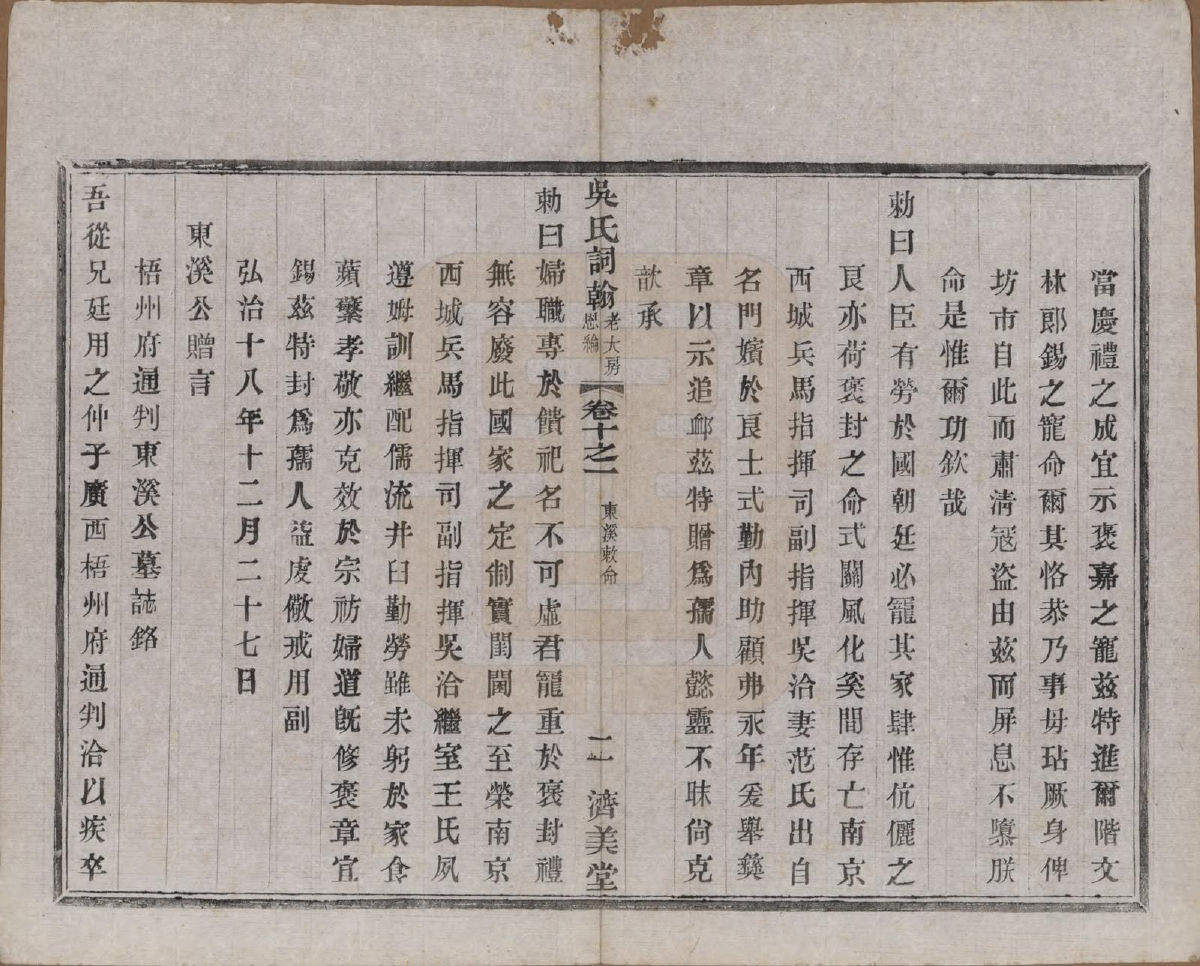 當慶禮之成宜示褒嘉之寵茲特進爾階文
林郎錫之寵命爾其恪恭乃事毋玷厥身俾
坊市自此而肅清寇盜由茲而屏息不隳朕
命是惟爾功欽哉
勅曰人臣有勞於國朝廷必寵其家肆惟伉儷之
良亦荷褒封之命式關風化奚間存亡南京
西城兵馬指揮司副指揮吳洽妻范氏出自
名門嬪於良士式勤內助顧弗永年爰舉彝
章以示追卹茲特贈爲孺人懿靈不昧尙克
歆承
吳氏詞翰 老大房 恩綸 卷十之一 東溪敕命 二 濟美堂
勅曰婦職專於饋祀名不可虛君寵重於褒封禮
無容廢此國家之定制實閨閫之至榮南京
西城兵馬指揮司副指揮吳洽繼室王氏夙
遵姆訓繼配儒流井臼勤勞雖未躬於家食
蘋蘩孝敬亦克效於宗祊婦道旣修褒章宜
錫茲特封爲孺人益虔儆戒用副
弘治十八年十二月二十七日
東溪公贈言
梧州府通判東溪公墓誌銘
吾從兄廷用之仲子廣西梧州府通判洽以疾卒